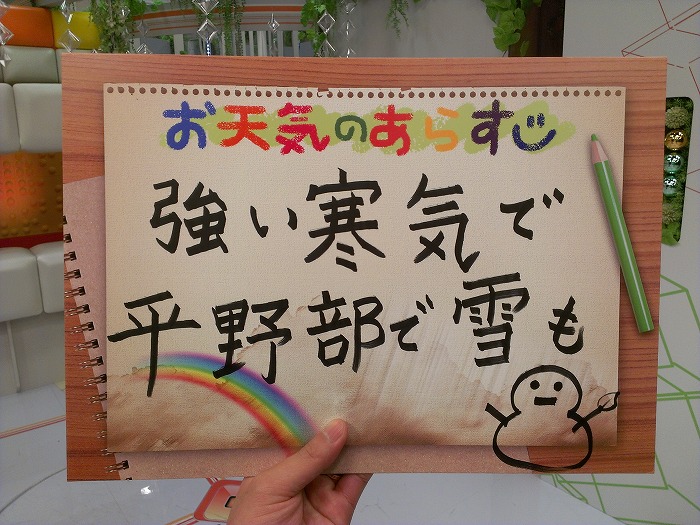 お天気のあらすじ
強い寒気で
平野部で雪も